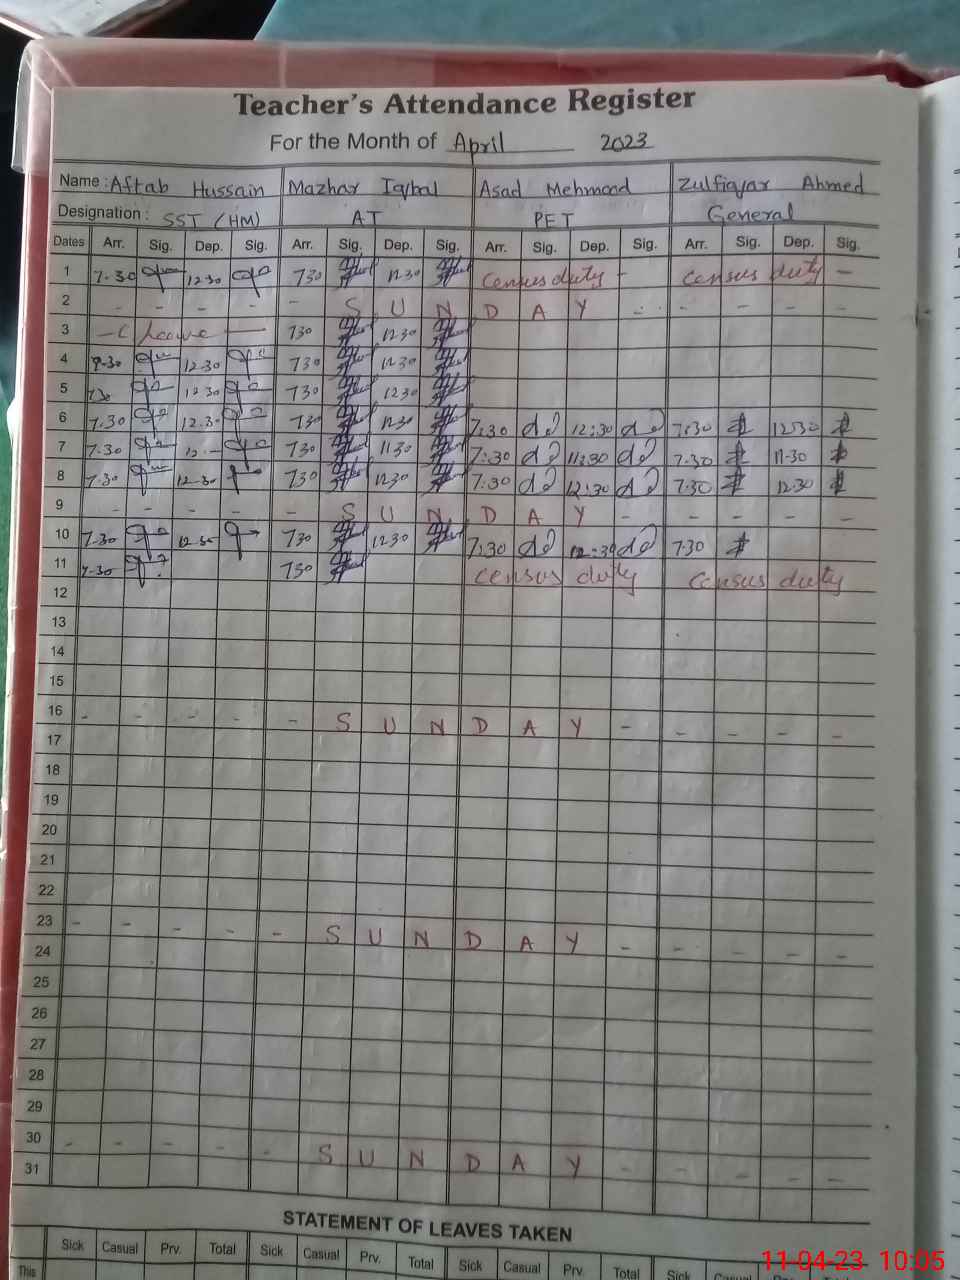 Teacher's Attendance Register
For the Month of April 2023
Name : Aftab Hussain Mazhar Iqbal Asad Mehmood Zulfiqar Ahmed
Designation : SST (HM) AT PET General
Dates Arr. Sig. Dep. Sig. Arr. Sig. Dep. Sig. Arr. Sig. Dep. Sig. Arr. Sig. Dep. Sig.
1 7-30 12-30 730 1230 Census duty - Census duty -
2 - - - - - S U N D A Y - - - - -
3 - C Leave - 730 1230
4 12-30 730 1230
5 12 30 730 1230
6 7.30 12.3 730 1230 7:30 12:30 7:30 1230
7 7-30 12 - 730 1130 7:30 11:30 7-30 11-30
8 7-30 12-30 730 1230 7:30 12:30 7-30 12-30
9 - - - - - S U N D A Y - - - - -
10 7-30 12-30 730 1230 7:30 12:30 7-30
11 7-30 730 Census duty Census duty
12
13
14
15
16 - - - - - S U N D A Y - - - - -
17
18
19
20
21
22
23 - - - - - S U N D A Y - - - - -
24
25
26
27
28
29
30 - - - - - S U N D A Y - - - - -
31
STATEMENT OF LEAVES TAKEN
Sick Casual Prv. Total Sick Casual Prv. Total Sick Casual Prv. Total Sick Casual
This
11-04-23 10:05